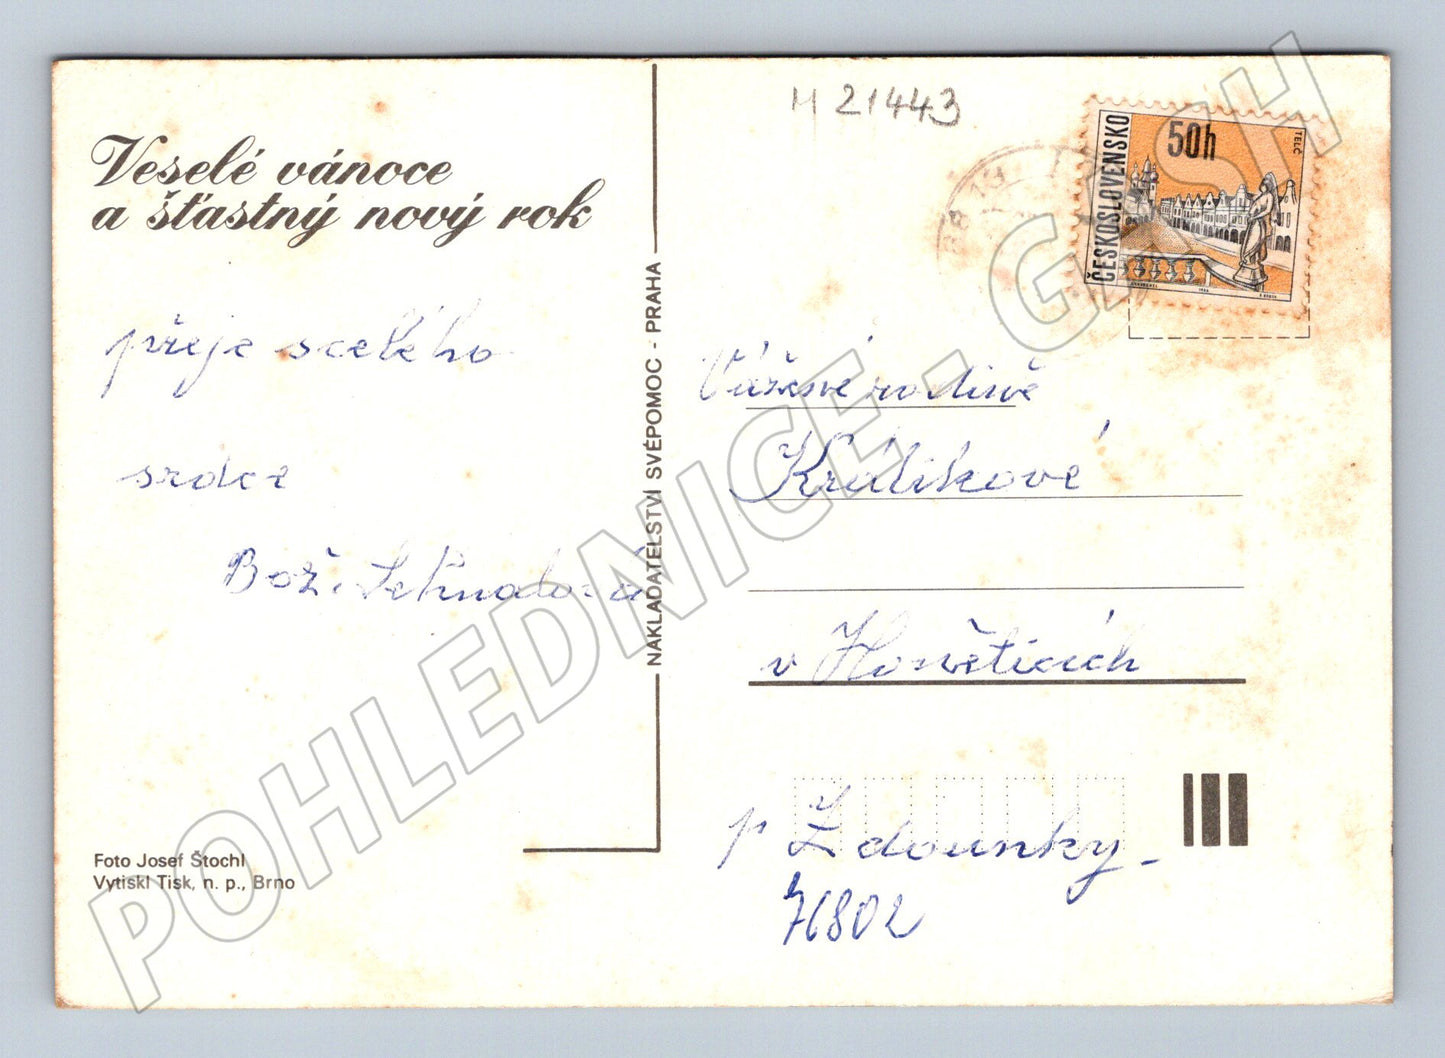 Veselé vánoce
a šťastný nový rok
přeje scelého
srdce
Bož.
Foto Josef Štochl
Vytiskl Tisk, n. p., Brno
NAKLADATELSTVÍ SVÉPOMOC - PRAHA
M 21443
ČESKOSLOVENSKO
50h
TELČ
Vážené rodině
Králíkové
v Honěticích
p Zdounky-
76802
POHLEDNICE - GASH